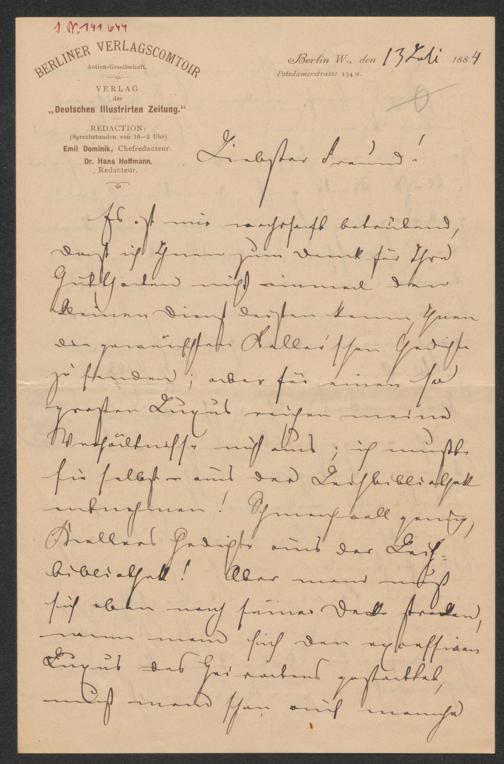 J. N. 141.644
BERLINER VERLAGSCOMTOIR
Actien-Gesellschaft.
VERLAG
der
„Deutschen Illustrirten Zeitung."
REDACTION:
(Sprechstunden von 10–2 Uhr)
Emil Dominik, Chefredacteur.
Dr. Hans Hoffmann,
Redacteur.
Berlin W., den 13 Juli 1884
Potsdamerstrasse 134 a.
Liebster Freund!
Es ist mir wahrhaft betrübend,
daß ich Ihnen zum Dank für Ihre
Gutthaten nicht einmal den
kleinen Dienst leisten kann, Ihnen
die gewünschten Keller'schen Gedichte
zu senden; aber für einen so
großen Luxus reichen meine
Verhältnisse nicht aus; ich mußte
sie selbst aus der Leihbibliothek
entnehmen! Schmachvoll genug,
Kellers Gedichte aus der Leih-
bibliothek! Aber man muß
sich eben nach seiner Decke strecken,
wenn man sich den expressiven
Luxus des Heiratens gestattet,
muß man schon auf manche